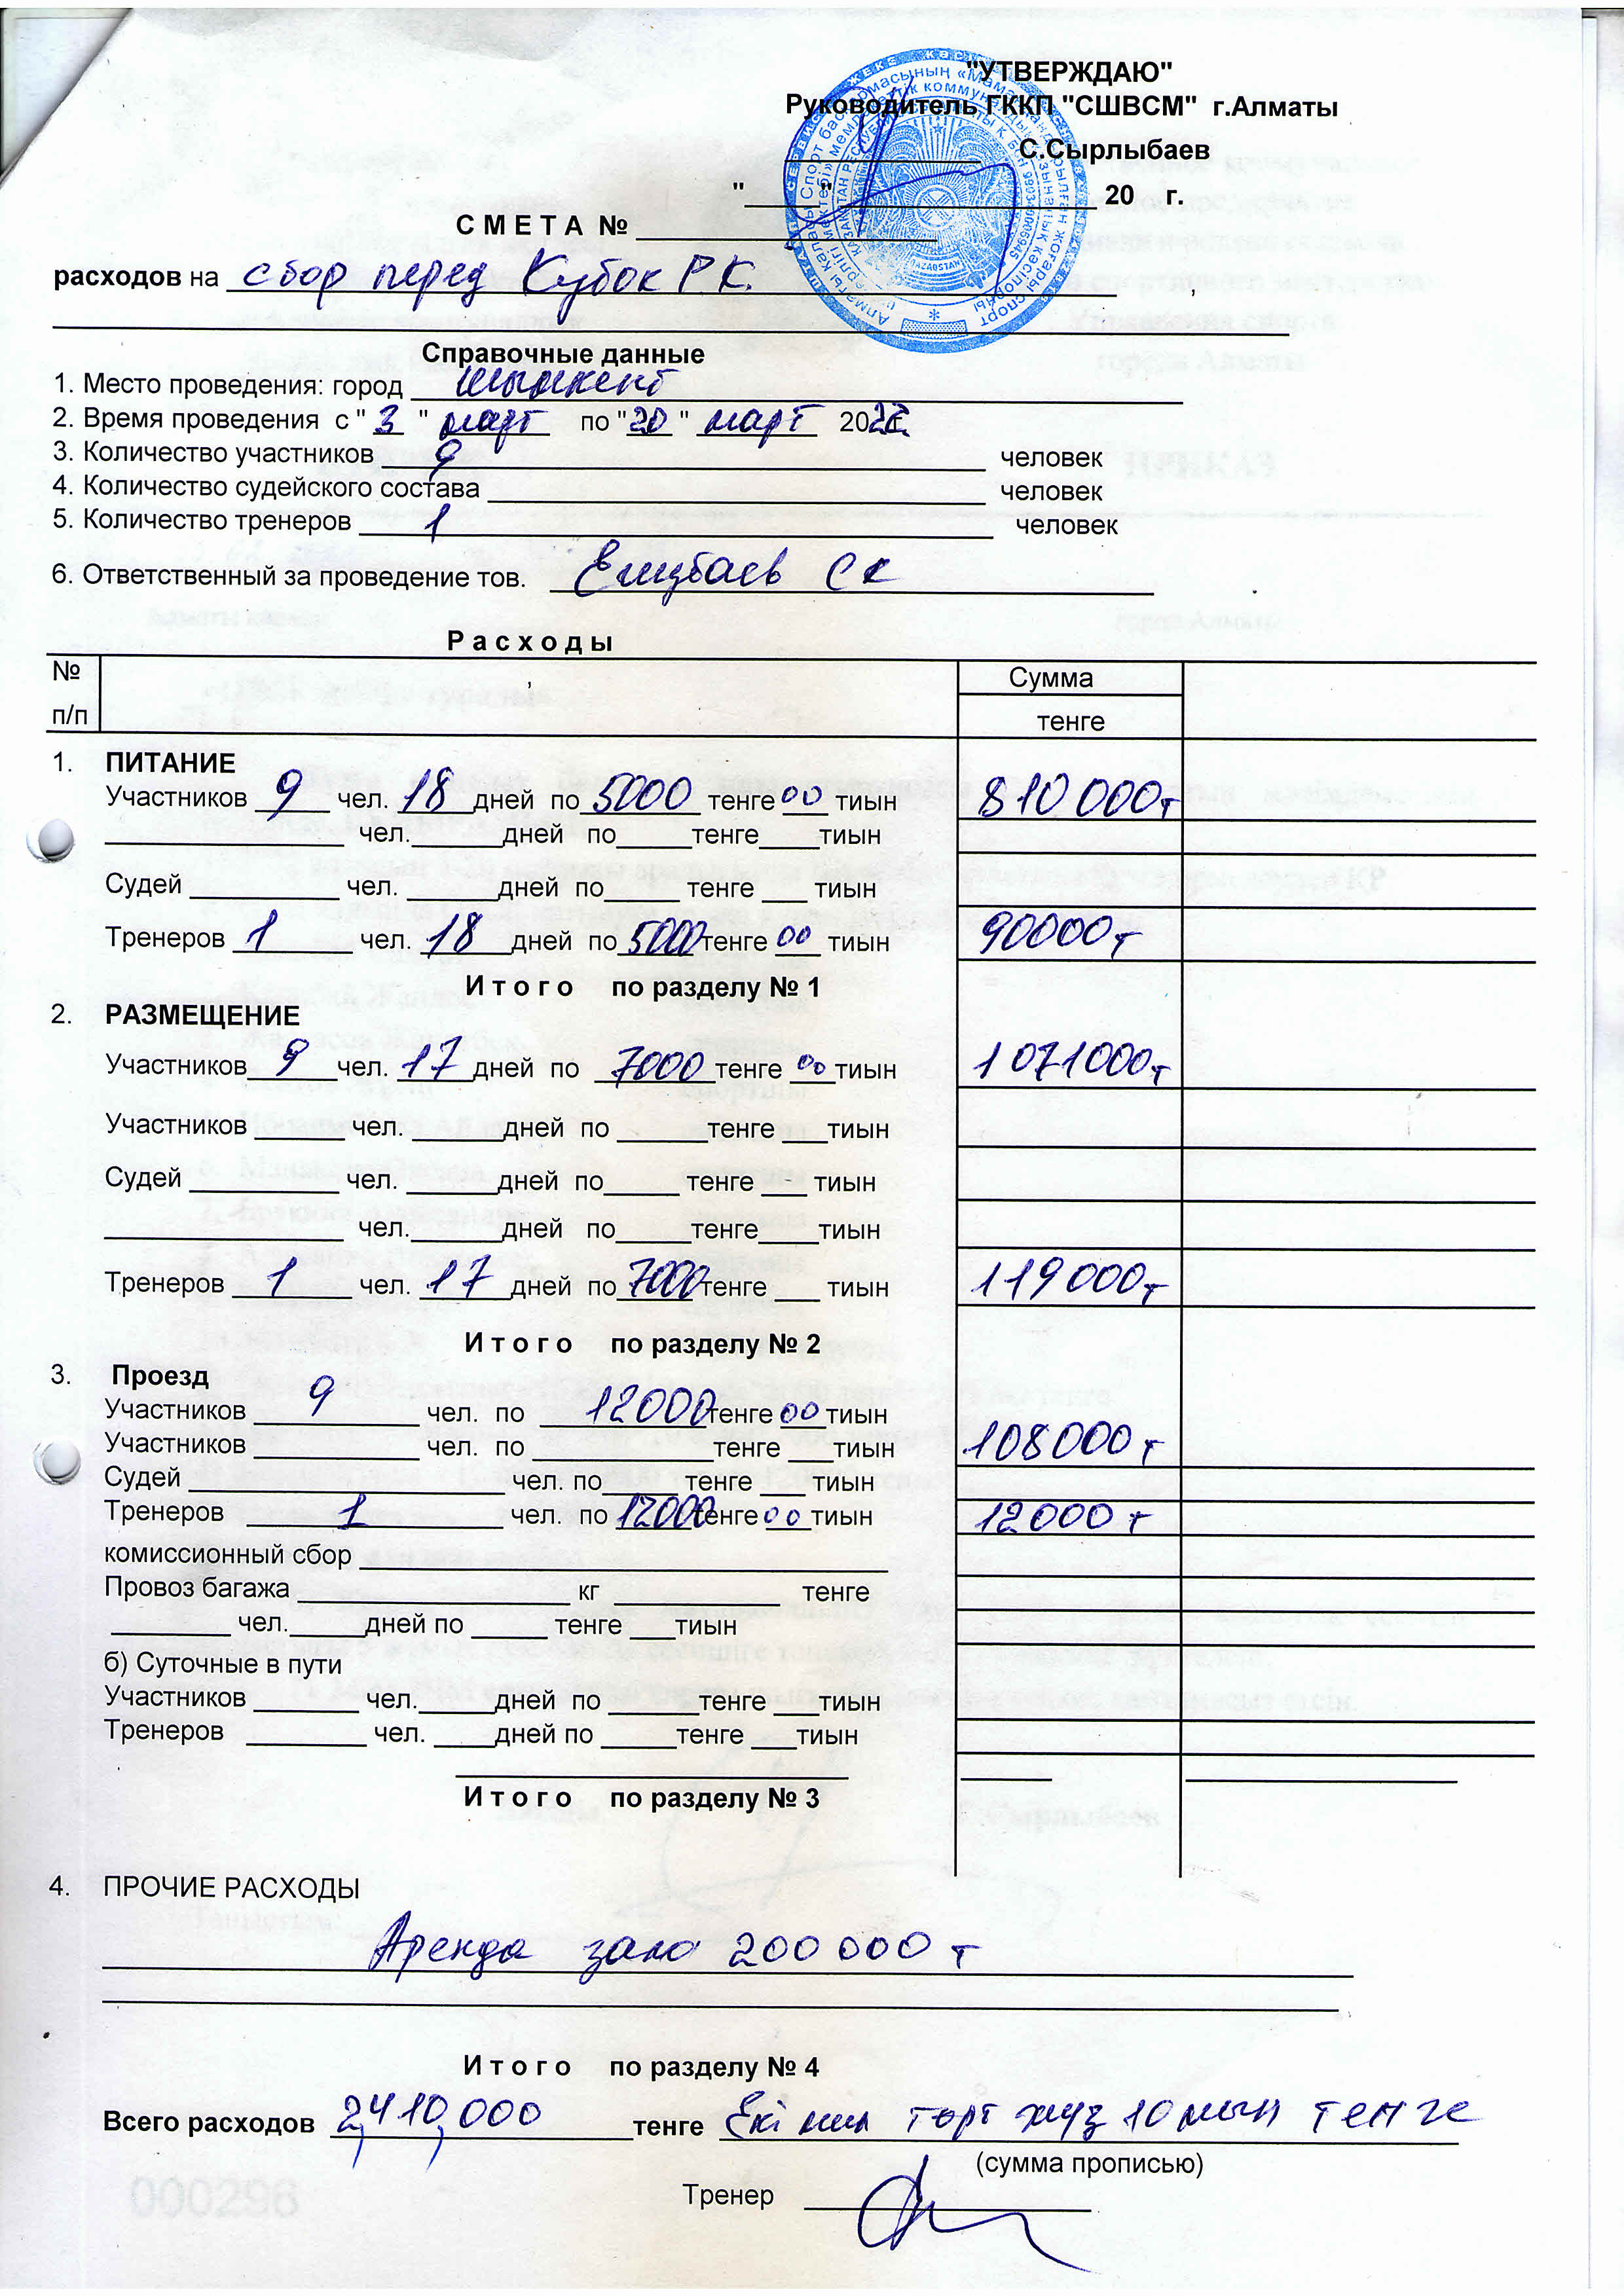 "УТВЕРЖДАЮ"
Руководитель ГККП "СШВСМ" г.Алматы
____________ С.Сырлыбаев
"_____" _________________ 20 г.
С М Е Т А № ____________________
расходов на сбор перед Кубок Р.К. ,
Справочные данные
1. Место проведения: город Шымкент
2. Время проведения с " 3 " март по "20 " март 20
3. Количество участников 9 человек
4. Количество судейского состава ____________ человек
5. Количество тренеров 1 человек
6. Ответственный за проведение тов. СК
Р а с х о д ы
№ п/п Сумма
тенге
1. ПИТАНИЕ
Участников 9 чел. 18 дней по 5000 тенге 00 тиын 810 000т
____________ чел.______дней по_____тенге____тиын
Судей __________ чел. ______дней по_____ тенге ___ тиын
Тренеров 1 чел. 18 дней по 5000 тенге 00 тиын 90000т
И т о г о по разделу № 1
2. РАЗМЕЩЕНИЕ
Участников 9 чел. 17 дней по 7000 тенге 00 тиын 1 071 000т
Участников ______ чел. ______дней по ______тенге ___тиын
Судей __________ чел. ______дней по_____ тенге ___ тиын
____________ чел.______дней по_____тенге____тиын
Тренеров 1 чел. 17 дней по 7000 тенге ___ тиын 119 000т
И т о г о по разделу № 2
3. Проезд
Участников 9 чел. по 12000 тенге 00 тиын
Участников ___________ чел. по ____________тенге ___тиын 108 000 т
Судей _____________________ чел. по_____ тенге ___ тиын
Тренеров 1 чел. по 12000 тенге 00 тиын 12 000 т
комиссионный сбор ____________________
Провоз багажа __________________ кг ___________ тенге
________ чел._____дней по _____ тенге ___тиын
б) Суточные в пути
Участников _______ чел._____дней по ______тенге ___тиын
Тренеров ________ чел. ____дней по _____тенге ___тиын
И т о г о по разделу № 3
4. ПРОЧИЕ РАСХОДЫ
Аренда зала 200 000 т
И т о г о по разделу № 4
Всего расходов 2,410,000 тенге Екі мил төрт жүз 10 мың тенге
(сумма прописью)
Тренер ____________
000296